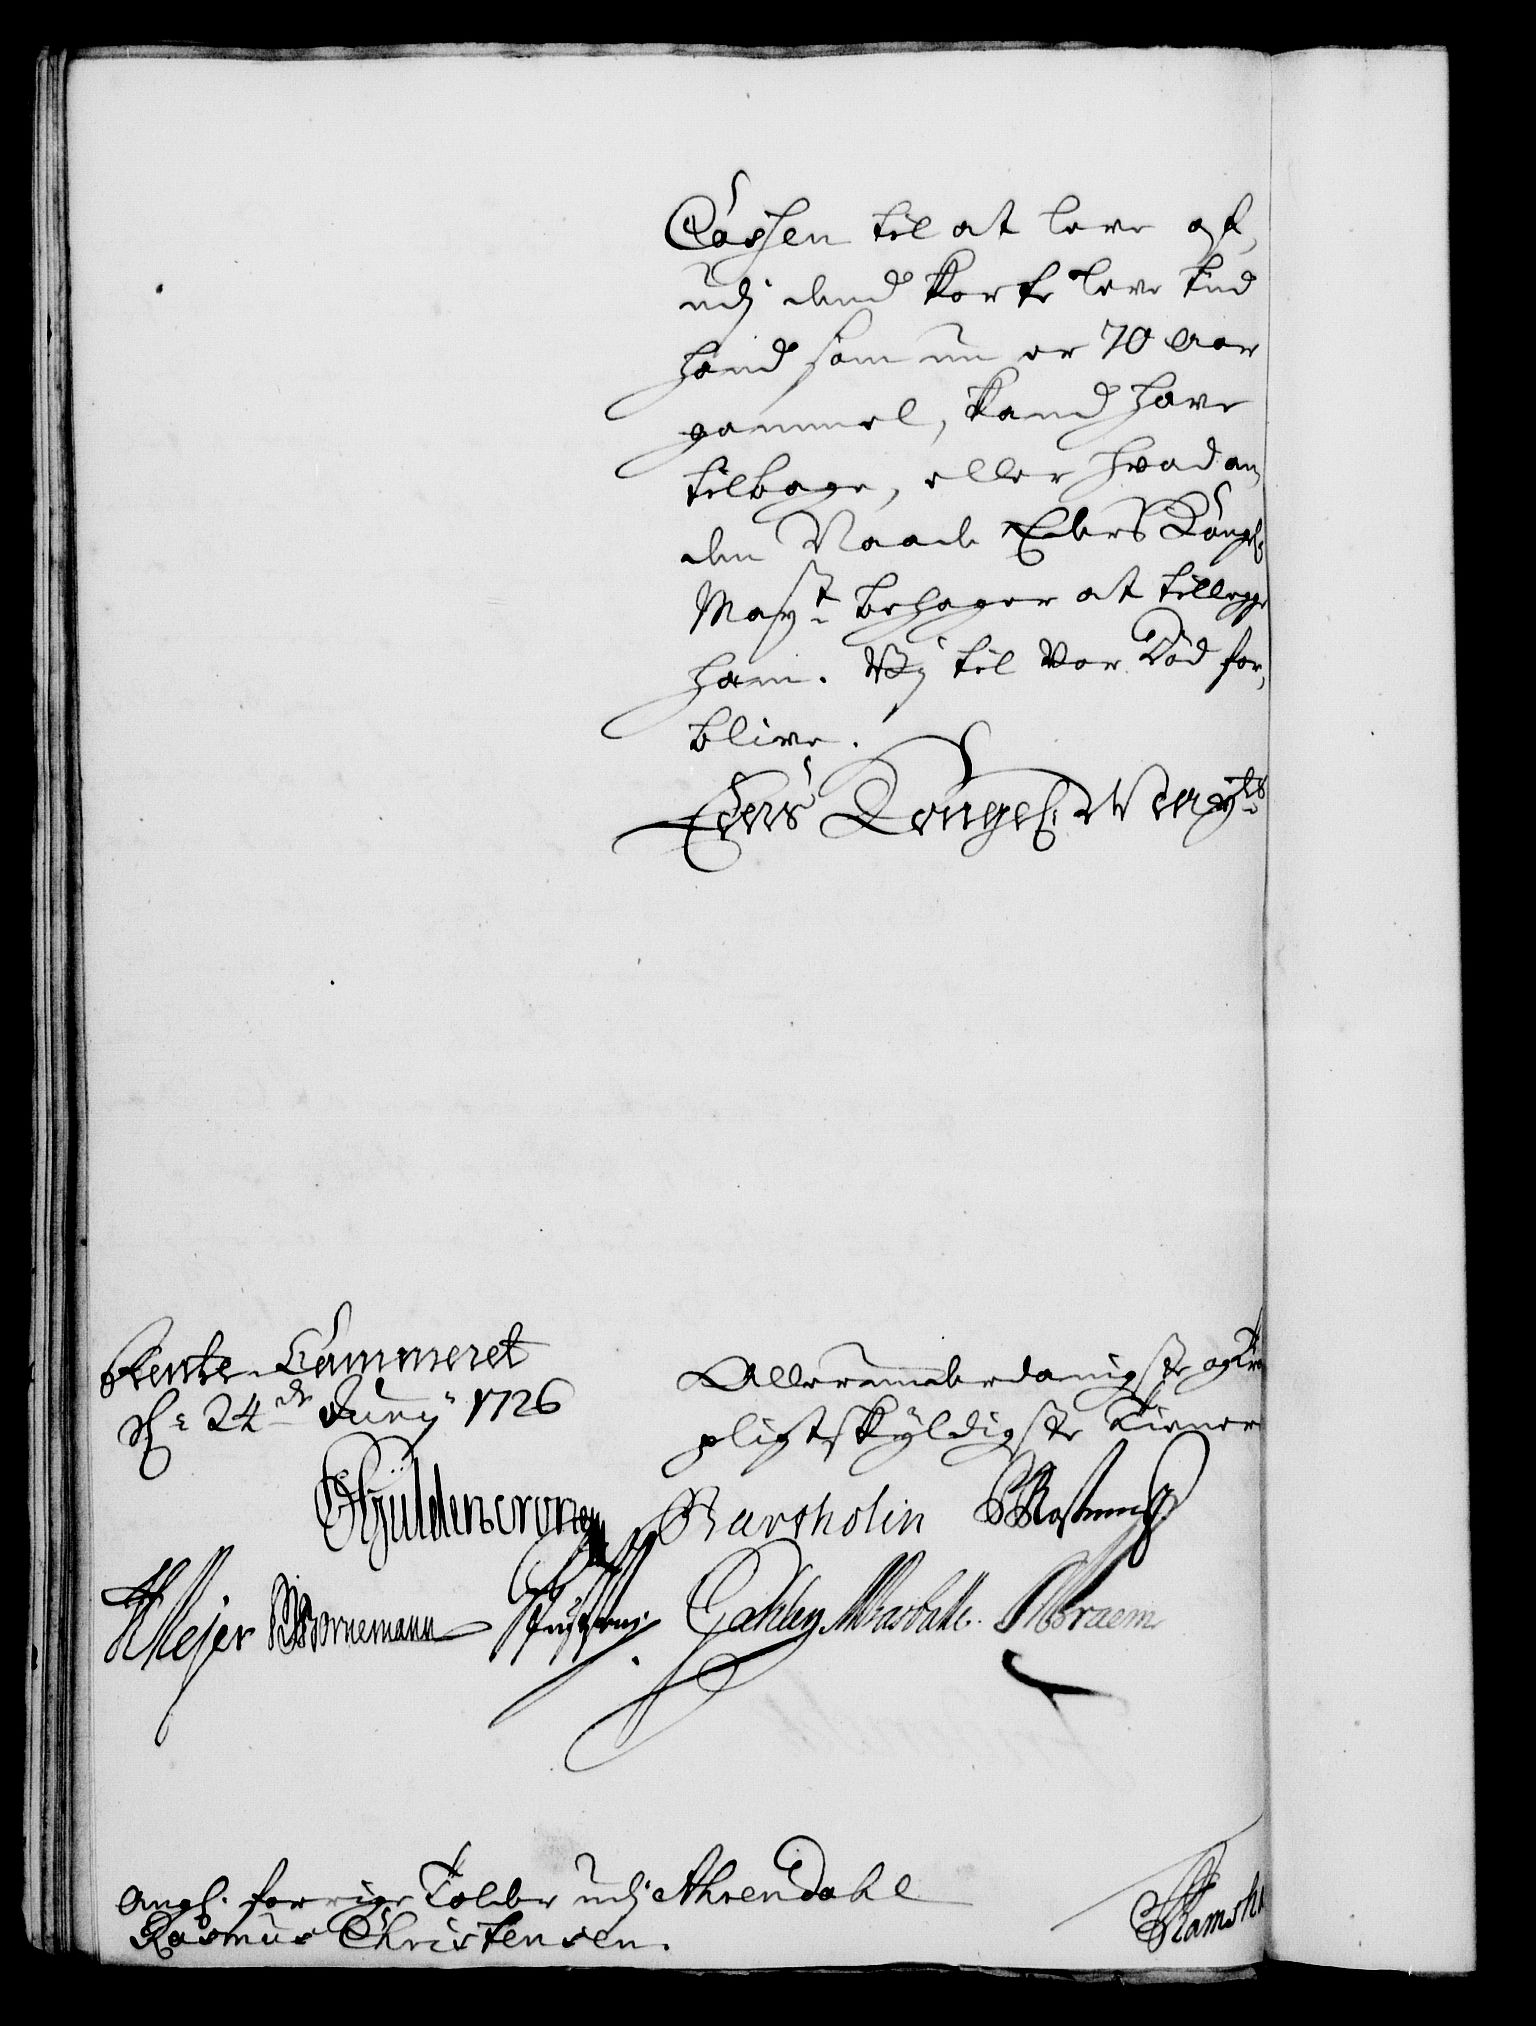 Cassen til at leve af,
udj dend korte leve tiid
hand som nu er 70 Aar
gammel, kand have
tilbage, eller hvad an,
den Naade Eders Kongl:
Mayt: behager at tillegge
ham. Vj til vor Død for,
blive.
Eders Kongel: Mayts
Rente-Cammeret
d: 24de Junij 1726
Allerunderdanigste og
pligtskyldigste Tienere
Gyldencrone Bartholin
Mejer Bornemann Braem
angl. forrige Tolder udj Ahrendahl
Rasmus Christensen.
Ramsh